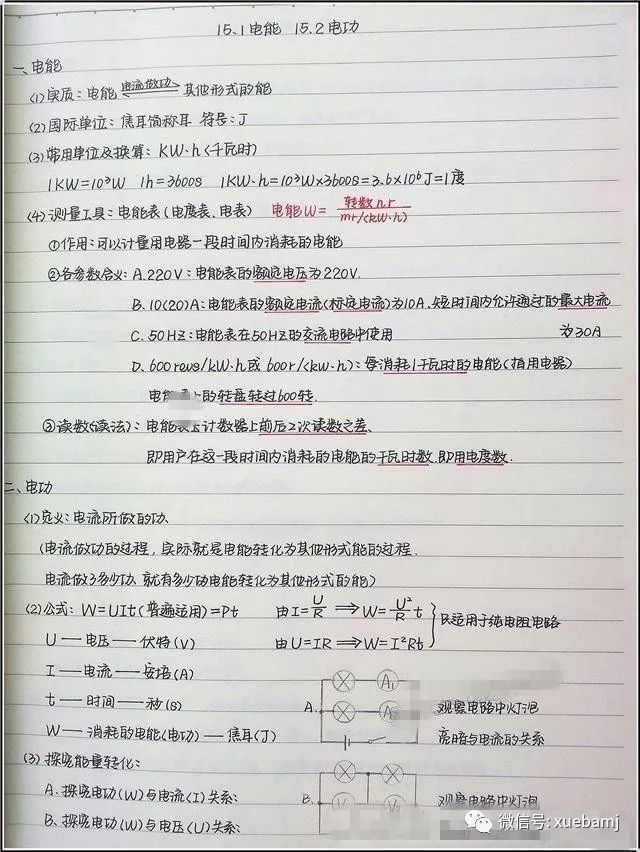 15.1电能 15.2电功
一、电能
(1)实质:电能 电流做功 其他形式的能
(2)国际单位:焦耳简称耳 符号:J
(3)常用单位及换算:KW·h(千瓦时)
1KW=10³W 1h=3600s 1KW·h=10³W×3600s=3.6×10⁶J=1度
(4)测量工具:电能表(电度表、电表) 电能W= 转数nr/mr/(kW·h)
①作用:可以计量用电器一段时间内消耗的电能
②各参数含义:A.220V:电能表的额定电压为220V.
B.10(20)A:电能表的额定电流(标定电流)为10A、短时间内允许通过的最大电流
C.50HZ:电能表在50HZ的交流电路中使用 为30A
D.600revs/kW·h或600r/(kw·h):每消耗1千瓦时的电能(指用电器)
电能 上的转盘转过600转.
③读数(读法):电能表上计数器上前后2次读数之差、
即用户在这一段时间内消耗的电能的千瓦时数.即用电度数.
二、电功
(1)定义:电流所做的功、
(电流做功的过程,实际就是电能转化为其他形式能的过程.
电流做了多少功、就有多少功电能转化为其他形式的能)
(2)公式:W=UIt(普遍适用)=Pt 由I=U/R ⟹W=U²/R t
U—电压—伏特(V) 由U=IR⟹W=I²Rt 只适用于纯电阻电路
I—电流—安培(A)
A₁
t—时间—秒(s) A. 观察电路中灯泡
W—消耗的电能(电功)—焦耳(J) 亮暗与电流的关系
(3)探究能量转化:
A、探究电功(W)与电流(I)关系: B. 观察电路中灯泡
B、探究电功(W)与电压(U)关系:
微信号: xuebamj